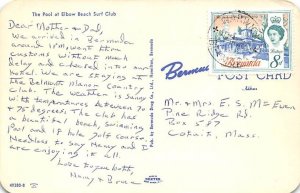 The Pool at Elbow Beach Surf Club
Dear Mother & Dad,
We arrived in Bermuda
around 1 PM, went thru
customs without much
delay and checked into our
hotel. We are staying at
the Belmont Manor Country
Club. The weather is sunny
with temperatures between 70
+ 75 degrees. The club has
a beautiful beach, swimming
pool and 18 hole golf course.
Needless to say Nancy and I
are enjoying it all.
Love to you both,
& Bruce
49380-B
Pub. by Bermuda Drug Co., Ltd., Hamilton, Bermuda
Bermuda
POST CARD
Address
Bermuda
8d
Mr. & Mrs. E. S. McEwen
Pine Ridge Rd.
Box 567
Cotuit, Mass.